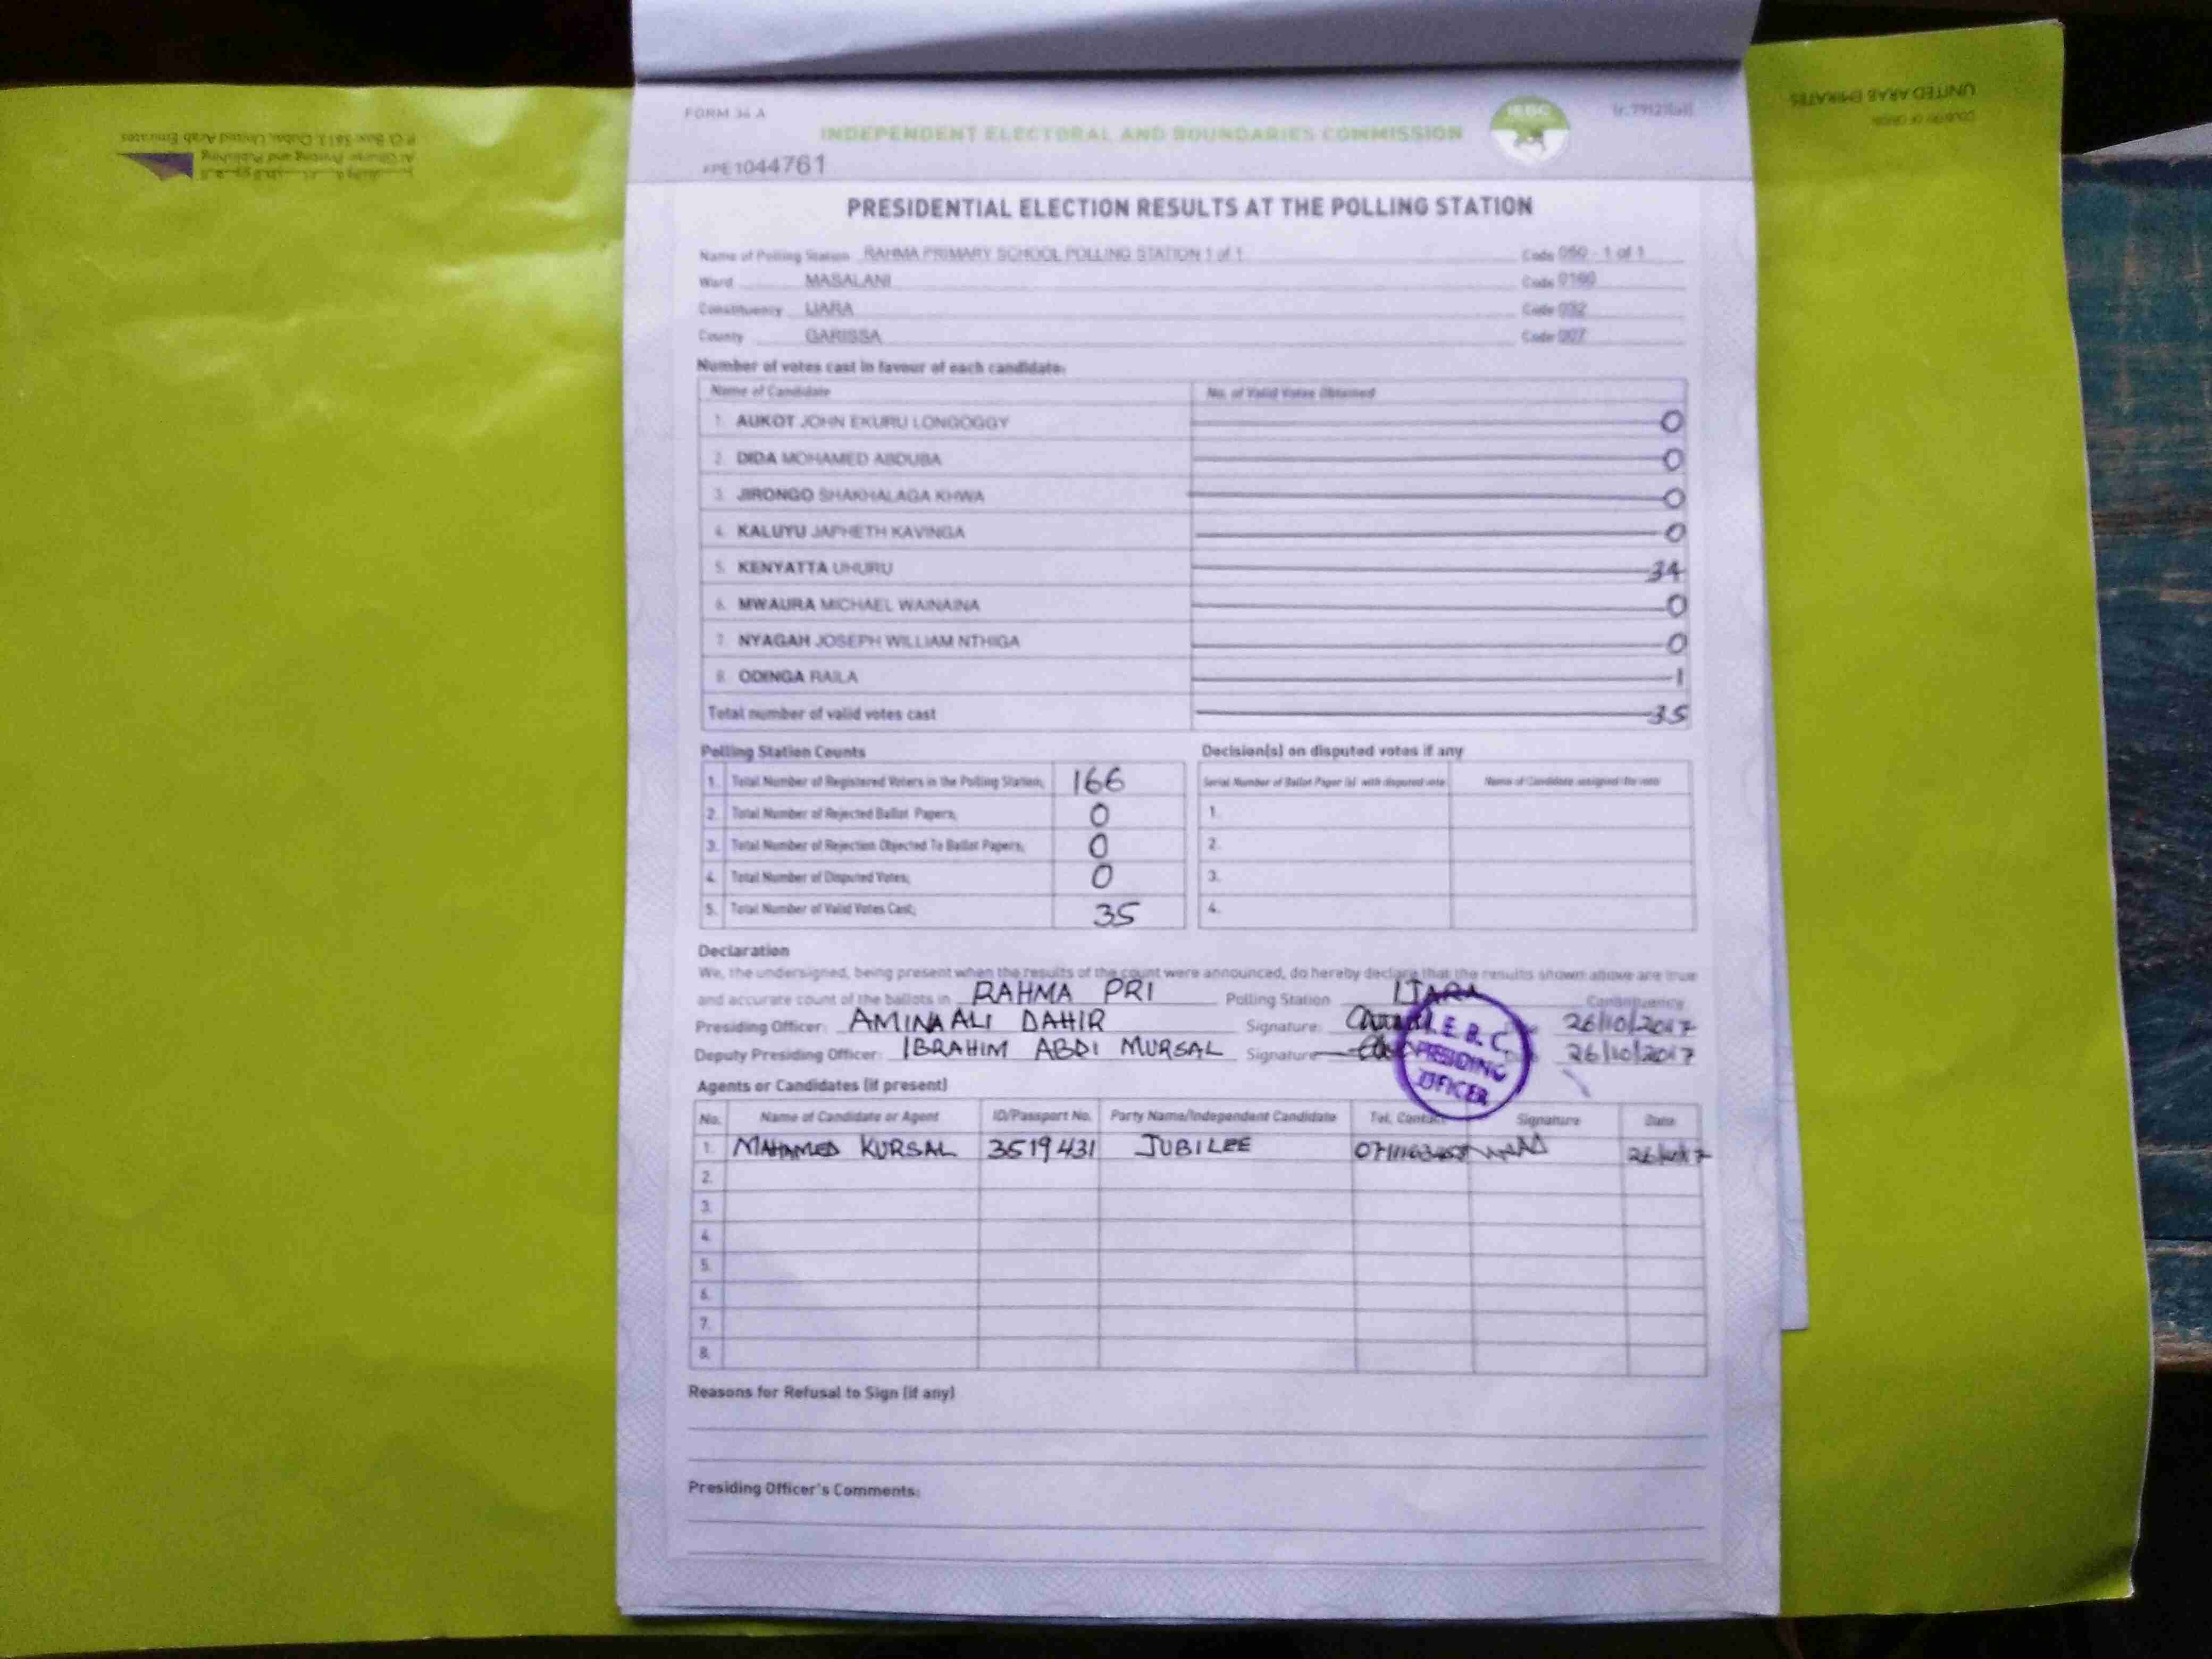 FORM 34 A
INDEPENDENT ELECTORAL AND BOUNDARIES COMMISSION
1044761
PRESIDENTIAL ELECTION RESULTS AT THE POLLING STATION
Name of Polling Station RAHMA PRIMARY SCHOOL POLLING STATION 1 of 1 Code 050 - 1 of 1
Ward MASALANI Code
Constituency IJARA Code 032
County GARISSA Code 007
Number of votes cast in favour of each candidate:
Name of Candidate No. of Valid Votes Obtained
1. AUKOT JOHN EKURU LONGOGGY 0
2. DIDA MOHAMED ABDUBA 0
3. JIRONGO SHAKHALAGA KHWA 0
4. KALUYU JAPHETH KAVINGA 0
5. KENYATTA UHURU 34
6. MWAURA MICHAEL WAINAINA 0
7. NYAGAH JOSEPH WILLIAM NTHIGA 0
8. ODINGA RAILA 1
Total number of valid votes cast 35
Polling Station Counts
1. Total Number of Registered Voters in the Polling Station; 166
2. Total Number of Rejected Ballot Papers; 0
3. Total Number of Rejection Objected To Ballot Papers; 0
4. Total Number of Disputed Votes; 0
5. Total Number of Valid Votes Cast; 35
Decision(s) on disputed votes if any
Serial Number of Ballot Paper (s) with disputed vote Name of Candidate assigned the vote
1.
2.
3.
4.
Declaration
We, the undersigned, being present when the results of the count were announced, do hereby declare that the results shown above are true
and accurate count of the ballots in RAHMA PRI Polling Station IJARA Constituency
Presiding Officer: AMINA ALI DAHIR Signature: Date 26/10/2017
Deputy Presiding Officer: IBRAHIM ABDI MURSAL Signature Date 26/10/2017
I.E.B.C.
PRESIDING
OFFICER
Agents or Candidates (if present)
No. Name of Candidate or Agent ID/Passport No. Party Name/Independent Candidate Tel. Contact Signature Date
1. MAHAMED KURSAL 3519431 JUBILEE
2.
3.
4.
5.
6.
7.
8.
Reasons for Refusal to Sign (if any)
Presiding Officer's Comments:
UNITED ARAB EMIRATES
COUNTRY OF ORIGIN
Al Ghurair Printing and Publishing
P.O. Box: 5613, Dubai, United Arab Emirates